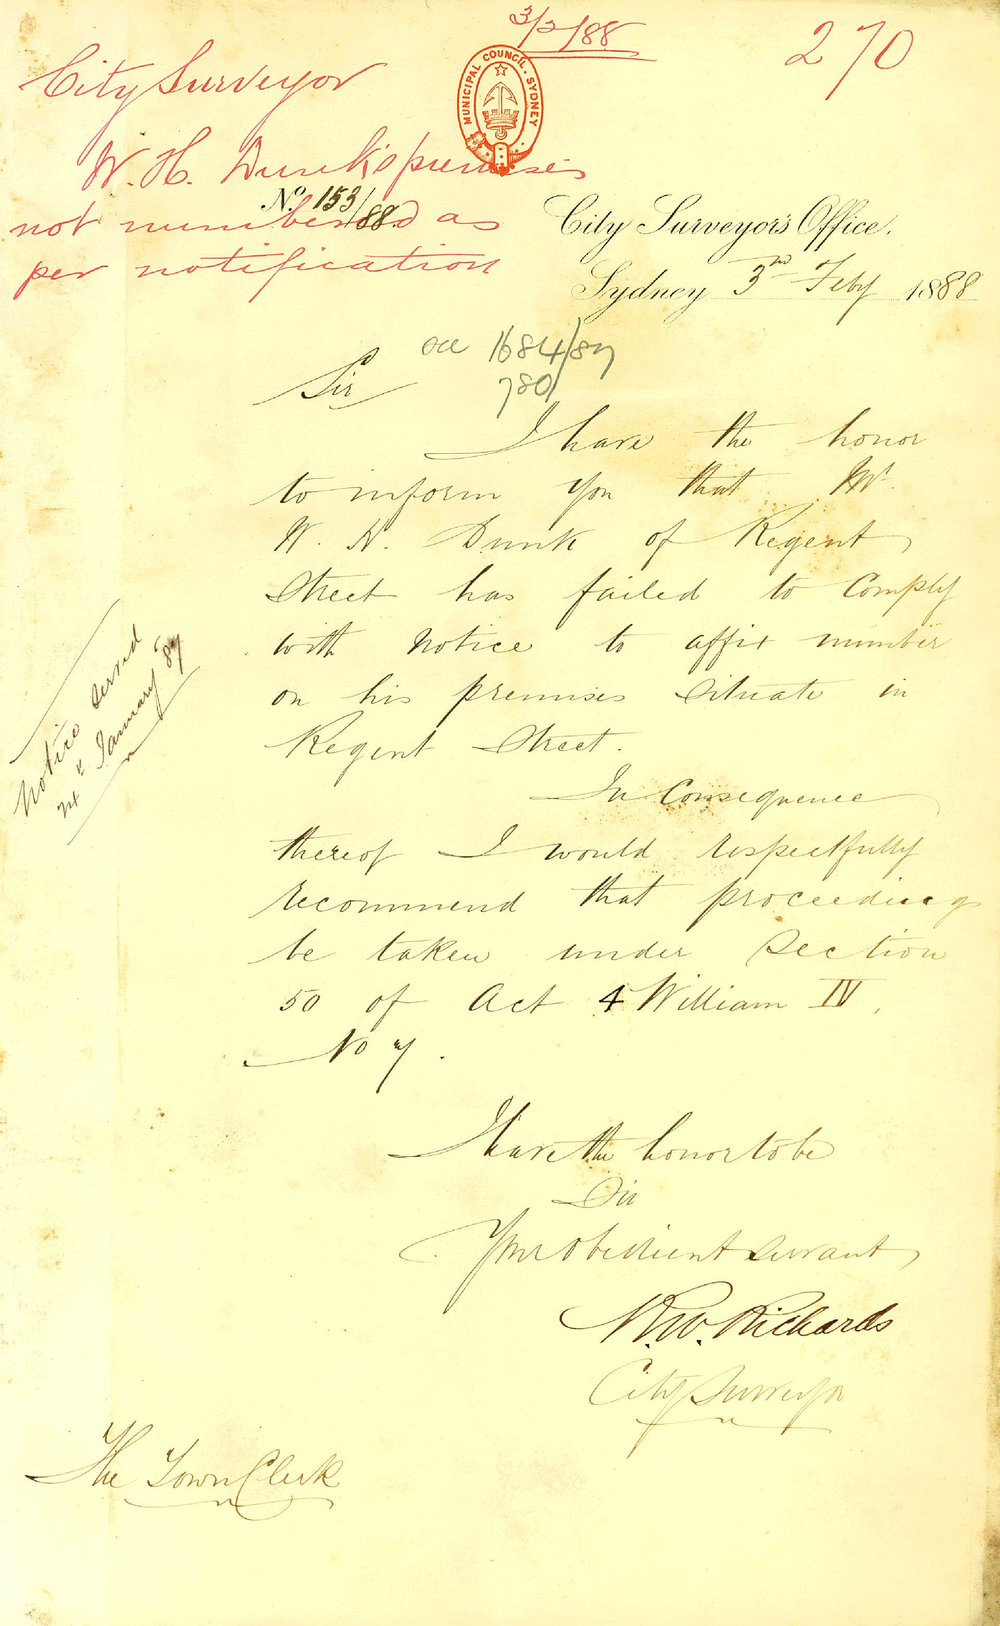 3/2/88
270
City Surveyor
W. H. Dunk's premises
not numbered as
per notification
MUNICIPAL COUNCIL. SYDNEY
No. 153/88
City Surveyor's Office.
Sydney 3rd Feby 1888
see 1684/87
780
Sir
I have the honor
to inform you that Mr.
W. H. Dunk of Regent
Street has failed to Comply
with notice to affix number
on his premises Situate in
Regent Street.
In Consequence
thereof I would respectfully
recommend that proceedings
be taken under Section
50 of Act 4 William IV,
No 7.
Notice served
January 87
I have the honor to be
Sir
Your obedient servant
R.W. Richards
City Surveyor
The Town Clerk